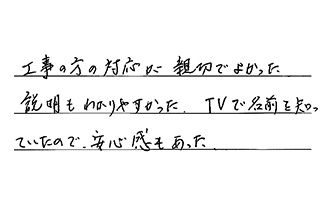 工事の方の対応が親切でよかった
説明もわかりやすかった。TVで名前を知っ
ていたので、安心感もあった